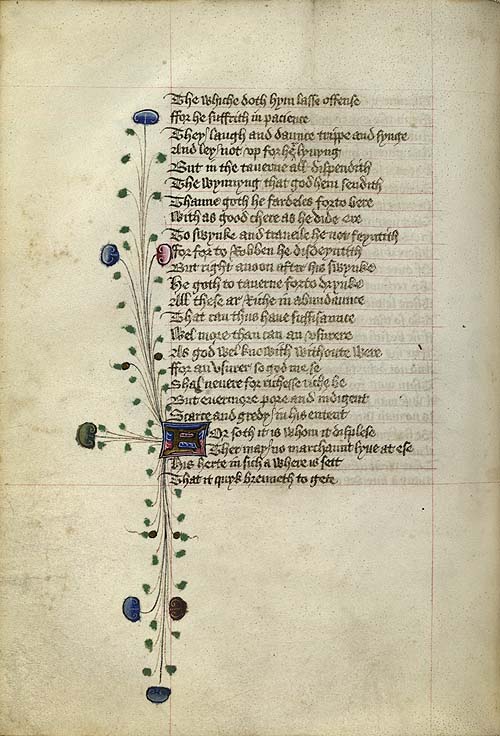 The whiche doth hym lasse offense
ffor he suffrith in pacience
They laugh and daunce trippe and synge
And ley not vp for her lyuyng
But in the tauerne all dispendith
The wynnyng that god hem sendith
Thanne goth he fardeles forto bere
With as good chere as he dide ere
To swynke and traueile he not feynith
ffor for to Robben he disdeyneth
But right anoon aftir his swynke
He goth to tauerne forto drynke
All these ar Riche in abundaunce
That can thus haue suffisaunce
Wel more than can an vsurere
As god wel knowith withoute were
ffor an vsurer so god me se
Shal neuere for richesse riche be
But euermore pore and indigent
Scarce and gredy in his entent
ffor soth it is whom it displese
Ther may no marchaunt lyue at ese
His herte in sich a where is sett
That it quyk brenneth to gete